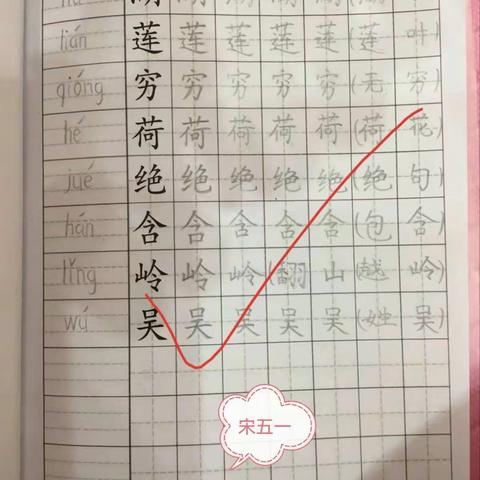 lián 莲 莲 莲 莲 莲 (莲
qióng 穷 穷 穷 穷 穷 (无 穷)
hé 荷 荷 荷 荷 荷 (荷 花)
jué 绝 绝 绝 绝 绝 (绝 句)
hán 含 含 含 含 含 (包 含)
lǐng 岭 岭 岭 (翻 山 越 岭)
wú 吴 吴 吴 吴 吴 (姓 吴)
宋五一